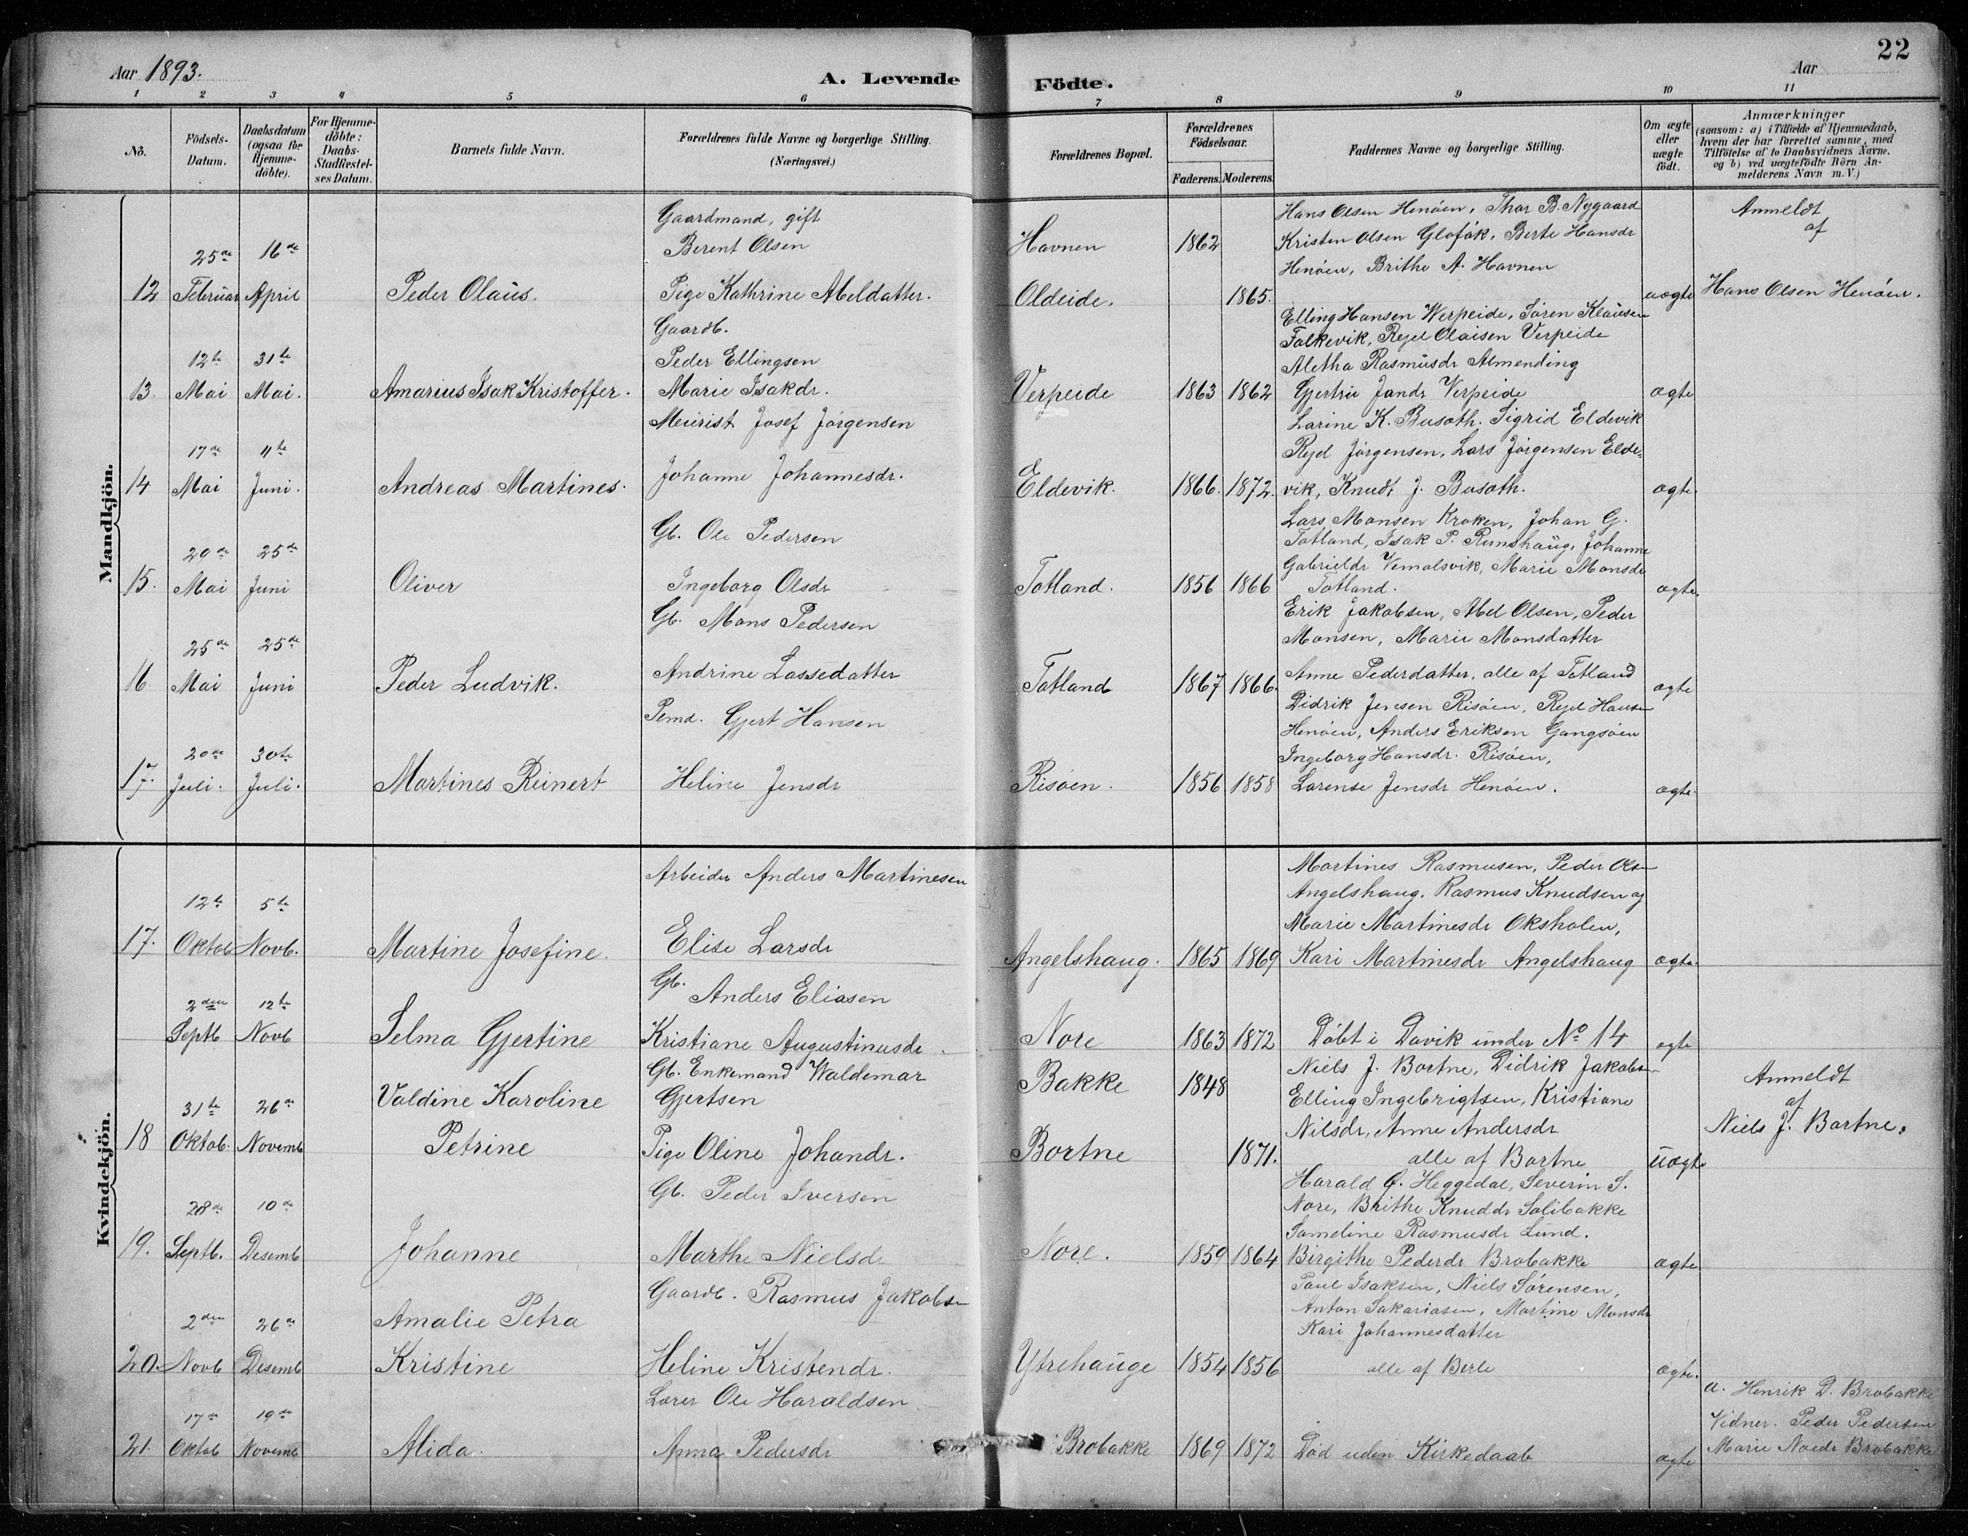 22
Aar 1893. A. Levende Födte. Aar
1 2 3 4 5 6 7 8 9 10 11
Nö.
Födsels-Datum.
Daabsdatum (ogsaa för Hjemme-döbte).
For Hjemme-döbte: Daabs-Stadfæstel-ses Datum.
Barnets fulde Navn.
Forældrenes fulde Navne og borgerlige Stilling. (Næringsvei.)
Forældrenes Bopæl.
Forældrenes Födselsaar.
Faderens. Moderens.
Faddernes Navne og borgerlige Stilling.
Om ægte eller uægte födt.
Anmærkninger
(saasom: a) i Tilfælde af Hjemmedaab, hvem der har forrettet samme, med Tilföielse af to Daabsvidners Navne. og b) ved uægtefödte Börn An-melderens Navn m. V.)
Mandkjön.
12 25de Februar 16de April
Peder Olaus.
Gaardmand, gift
Berent Olsen
Pige Kathrine Abeldatter.
Havnen 1862
Oldeide. 1865.
Hans Olsen Henöen, Thor B. Nygaard
Kristen Olsen Glofok, Berte Hansdr
Henöen, Brithe A. Havnen
uægte
Anmeldt
af
Hans Olsen Henöen.
13. 12te Mai 31te Mai.
Amarius Isak Kristoffer.
Gaardb.
Peder Ellingsen
Marie Isakdr.
Verpeide 1863 1862
Elling Hansen Werpeide, Sören Klausen
Falkevik, Rejel Olaisen Verpeide
Aletha Rasmusdr Almending
Gjertru Jandr Verpeide
ægte
14 17de Mai 11te Juni.
Andreas Martines.
Meierist Josef Jörgensen
Johanne Johannesdr.
Eldevik. 1866. 1872.
Larine K. Busöth. Sigrid Eldevik
Rejel Jörgensen, Lars Jörgensen Elde-
vik, Knudt J. Busoth.
ægte.
15. 20de Mai 25de Juni
Oliver
Gb. Ole Pedersen
Ingeborg Olsdr
Totland. 1856 1866
Lars Monsen Kroken, Johan G.
Totland, Isak P. Rimshaug, Johanne
Gabrieldr Vemalsvik, Marie Monsdr
Totland.
ægte.
16 25de Mai 25de Juni
Peder Ludvik.
Gb. Mons Pedersen
Andrine Lassedatter
Totland 1867 1866.
Erik Jakobsen, Abel Olsen, Peder
Monsen, Marie Monsdatter
Anne Pederdatter, alle af Totland
ægte
17. 20de Juli. 30te Juli.
Martines Reinert
Pemd. Gjert Hansen
Heline Jensdr
Risöen. 1856 1858
Didrik Jensen Risöen, Rejel Hansen
Henöen, Anders Eriksen Gangsöen
Ingeborg Hansdr. Risöen,
Larense Jensdr Henöen.
ægte.
Kvindekjön.
17. 12te Oktob 5te Novb.
Martine Josefine.
Arbeider Anders Martinesen
Elise Larsdr
Angelshaug. 1865 1869
Martines Rasmusen, Peder Olsen
Angelshaug, Rasmus Knudsen og
Marie Martinesdr Oksholen,
Kari Martinesdr Angelshaug
ægte
2den Septb 12te Novb
Selma Gjertine
Gb.
Anders Eliasen
Kristiane Augustinusdr.
Nore 1863 1872
Döbt i Davik under No 14
ægte
18 31te Oktob. 26de Novemb
Valdine Karoline
Petrine
Gb. Enkemand Waldemar
Gjertsen
Pige Oline Johandr.
Bakke 1848
Bortne 1871.
Niels J. Bortne, Didrik Jakobsen
Elling Ingebrigtsen, Kristiane
Nilsdr, Anne Andersdr
alle af Bortne
uægte
Anmeldt
af
Niels J. Bortne.
19. 28de Septb. 10de Desemb
Johanne
Gb. Peder Iversen
Marthe Nielsdr
Nore. 1859 1864
Harald O. Heggedal, Severin S.
Nore, Brithe Knuddr Solibakke
Sameline Rasmusdr Lund.
Birgithe Pederdr Brobakke
ægte
20. 2den Novb 26de Desemb
Amalie Petra
Kristine
Gaardb. Rasmus Jakobsen
Heline Kristendr.
Ytrehauge 1854 1856
Paul Isaksen, Niels Sörensen,
Anton Sakariasen, Martine Monsdr
Kari Johannesdatter
alle af Berle
ægte.
21. 17de Oktob 19de Novemb
Alida.
Lærer Ole Haraldsen
Anna Pedersdr
Brobakke 1869 1872
Död uden Kirkedaab
ægte
a. Henrik D. Brobakke
Vidner. Peder Pedersen
Marie Noedr Brobakke